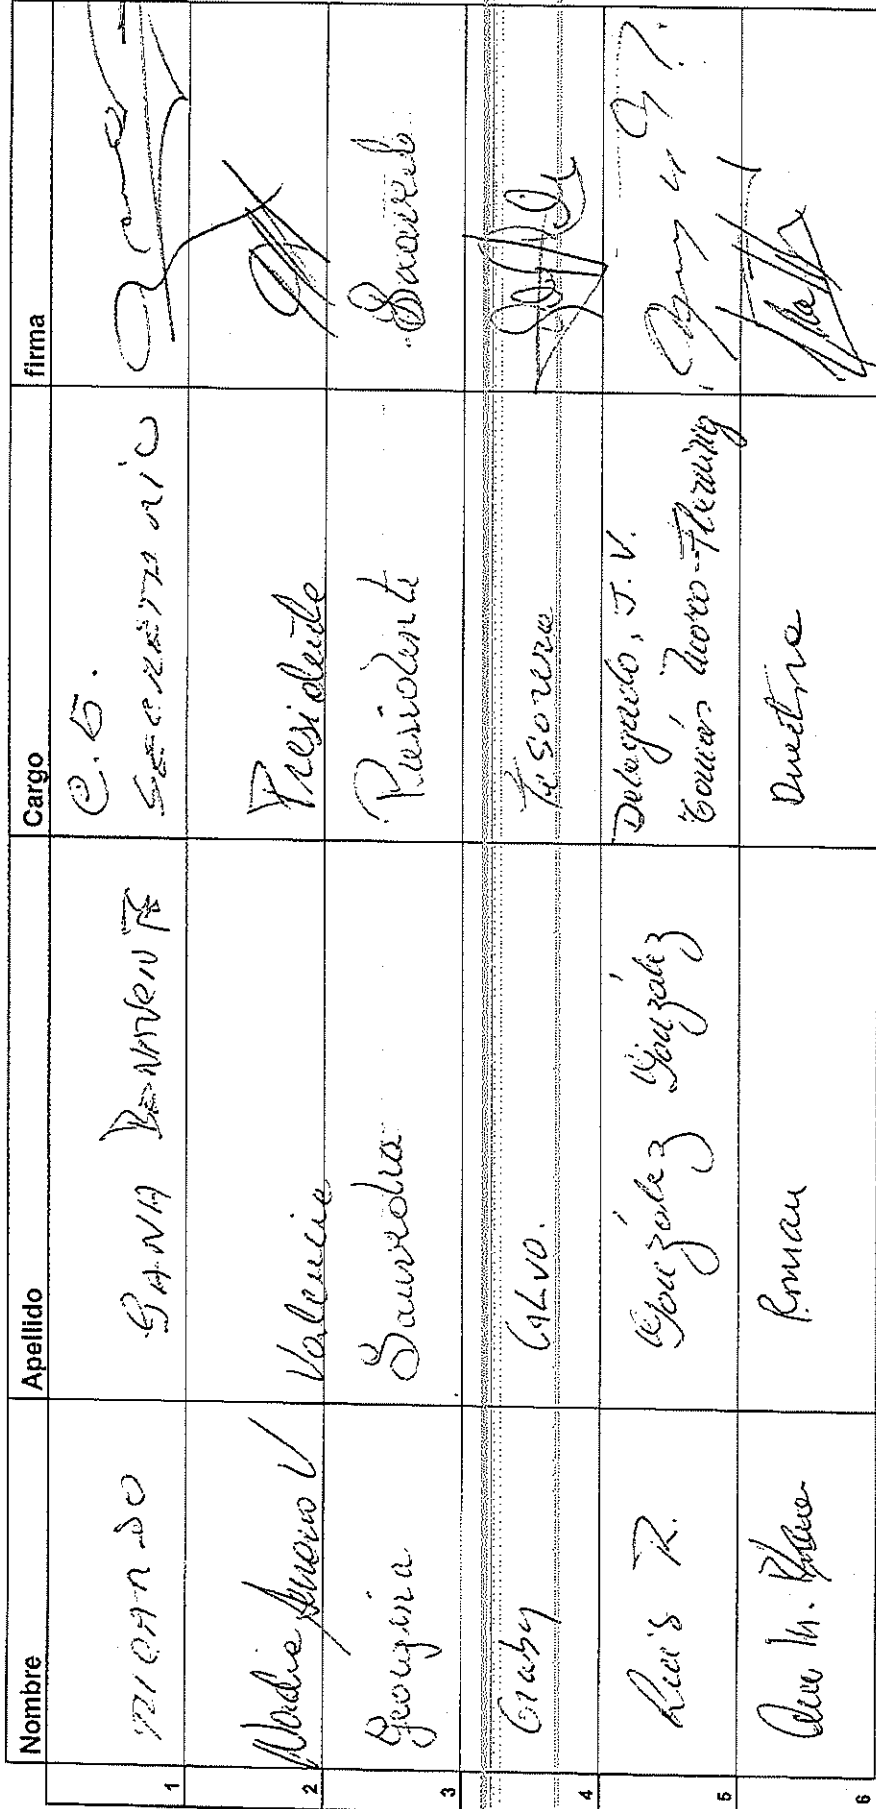 Nombre Apellido Cargo firma
1 RICARDO GANA BENAVENTE C.G.
SECRETARIO
2 Valencia Presidente
3 Georgina Saavedra Presidenta Saavedra
4 Gaby CALVO. Tesorera
5 Luis R. González González Delegado, J.V.
Tomás Moro-Fleming
6 Ana M. Roman Directora